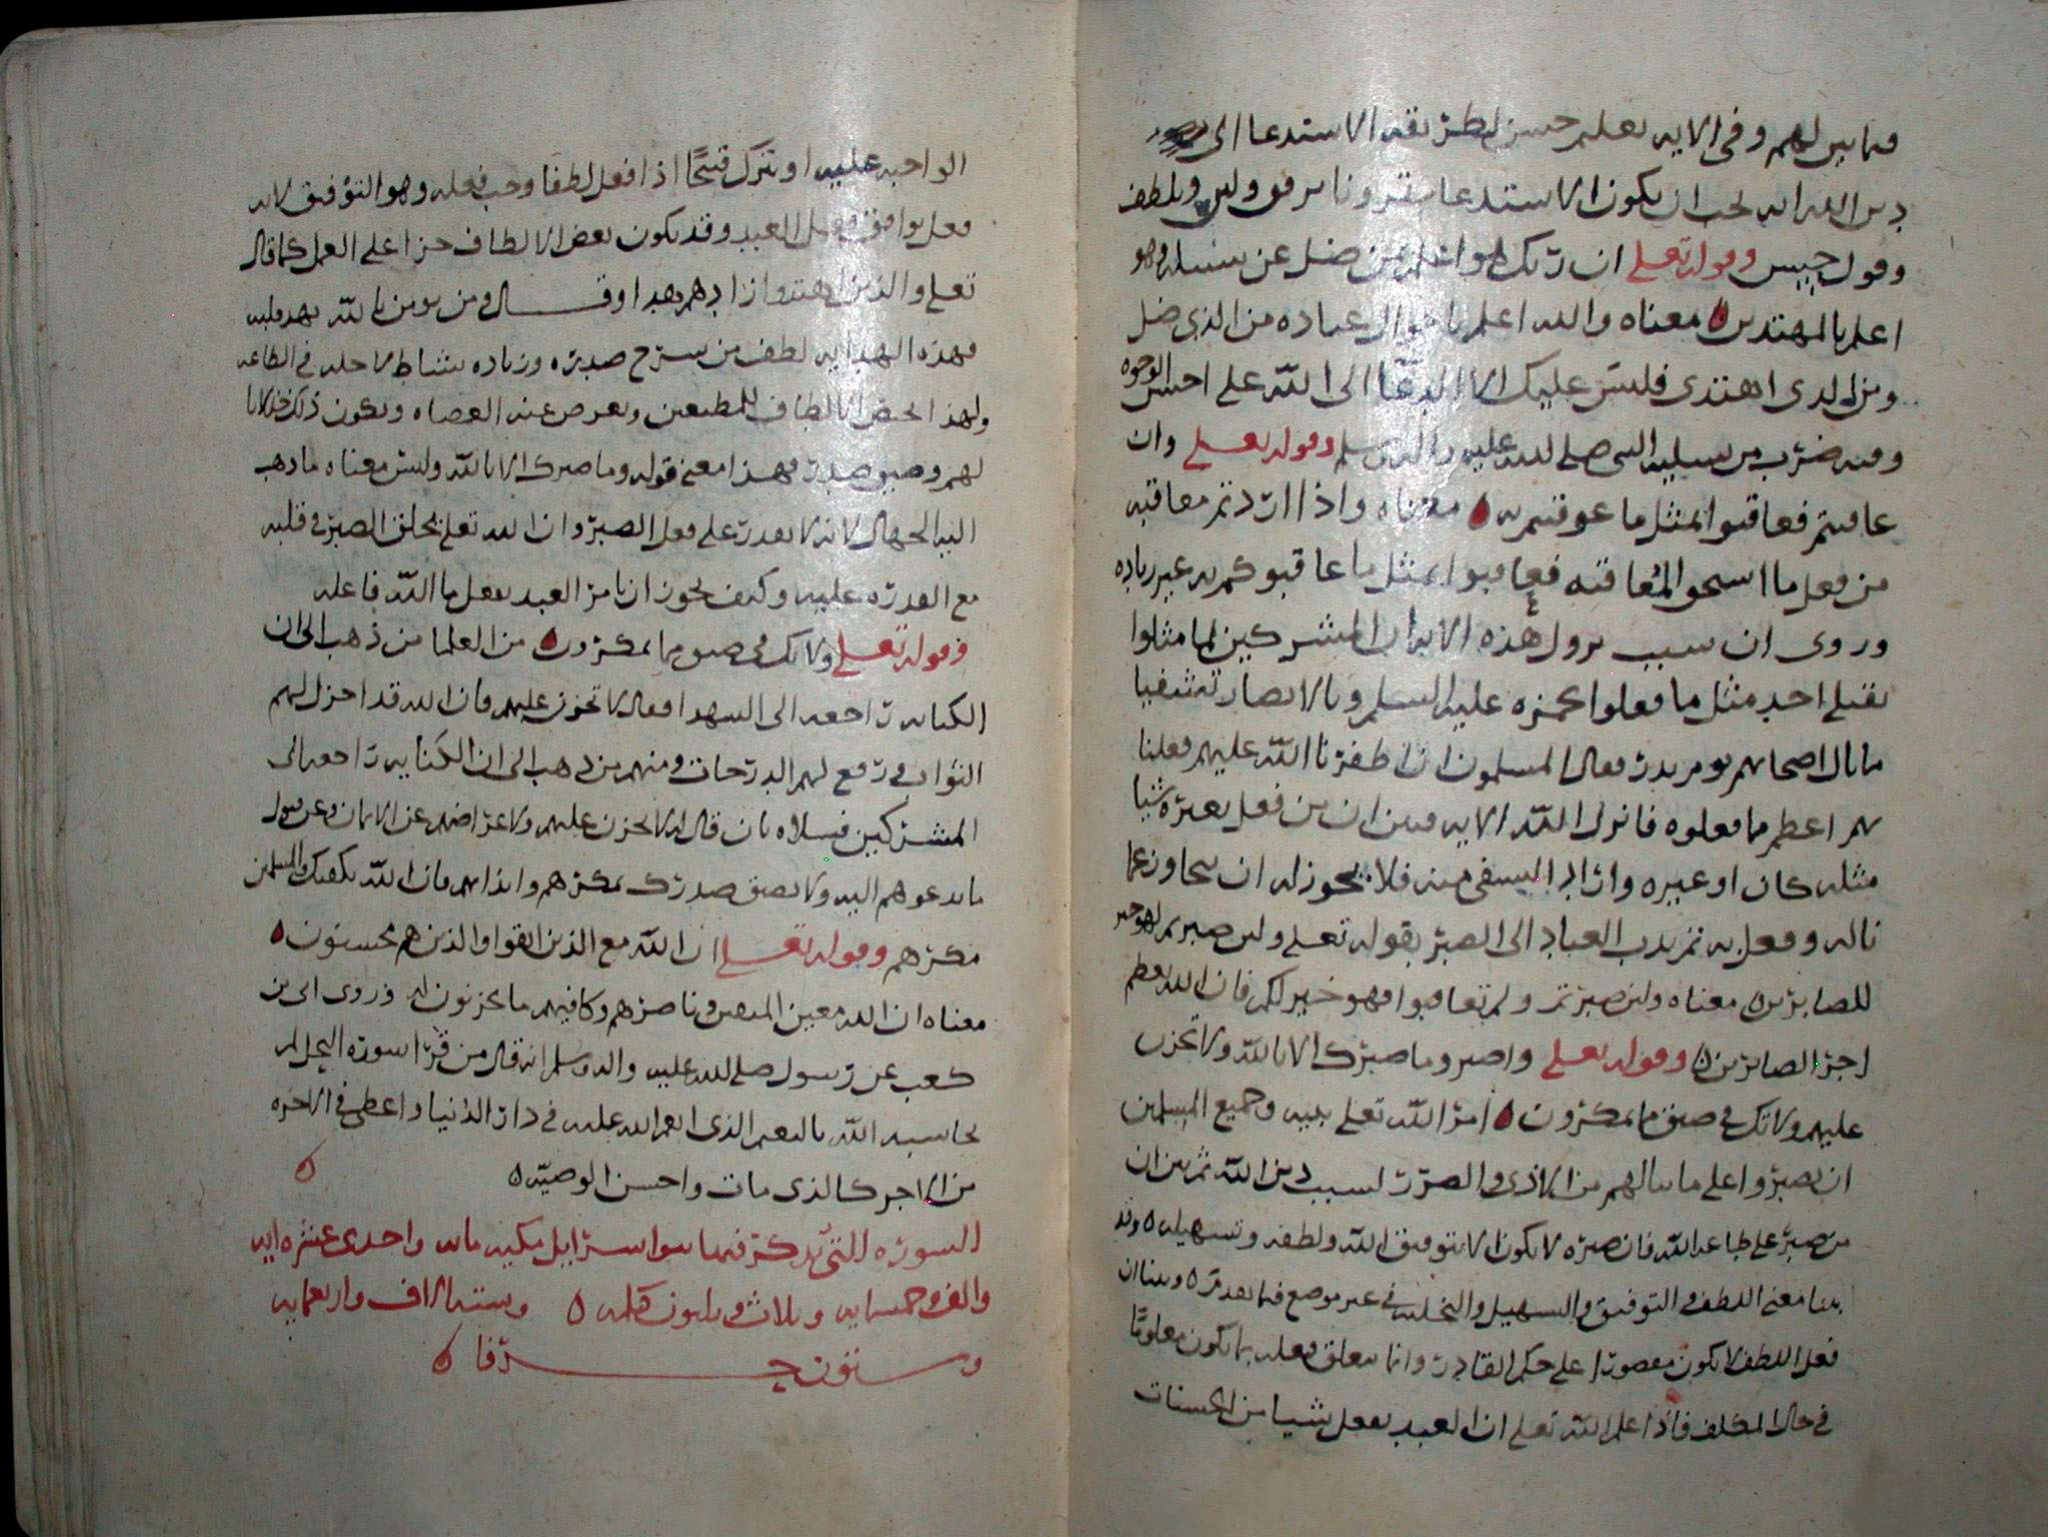 فيما بين لهم وفي الايه تعليم حسن لطريقه الاستدعا الى
دين الله انه يجب ان يكون الاستدعا مقرونا برفق ولين ولطف
وقول حسن وقوله تعلى ان ربك هو اعلم بمن ضل عن سبيله وهو
اعلم بالمهتدين معناه والله اعلم باحوال عباده من الذي ضل
ومن الذي اهتدى فليس عليك الا الدعا الى الله على احسن الوجوه
ومنه ضرب من تسليه النبي صلى الله عليه واله وسلم وقوله تعلى وان
عاقبتم فعاقبوا بمثل ما عوقبتم به معناه واذا اردتم معاقبه
من فعل ما استحق المعاقبه فعاقبوا بمثل ما عاقبوكم به غير زياده
وروى ان سبب نزول هذه الايه ان المشركين لما مثلوا
بقتلى احد مثل ما فعلوا بحمزه عليه السلم وبالانصار تشفيا
ما نال اصحابهم يوم بدر فقال المسلمون ان اظفرنا الله عليهم فعلنا
بهم اعظم مما فعلوه فانزل الله الايه فبين ان من فعل بغيره شيا
مثله كان او غيره واراد التشفي منه فلا يجوز له ان يتجاوز عما
ناله وفعل به ثم ندب العباد الى الصبر بقوله تعلى ولئن صبرتم لهو خير
للصابرين معناه ولئن صبرتم ولم تعاقبوا فهو خير لكم فان الله يعظم
اجر الصابرين وقوله تعلى واصبر وما صبرك الا بالله ولا تحزن
عليهم ولا تك في ضيق مما يمكرون امر الله تعلى نبيه وجميع المسلمين
ان يصبروا على ما ينالهم من الاذى والضرر لسبب دين الله ثم بين ان
من صبر على طاعه الله فان صبره لا يكون الا بتوفيق الله ولطفه وتسهيله وقد
بينا معنى اللطف والتوفيق والتسهيل والتخليه في غير موضع فيما تقدم وبينا ان
فعل اللطف لا يكون مقصورا على حكم القادر وانما يتعلق فعله بما يكون معلوما
في حال المكلف فاذا علم الله تعلى ان العبد يفعل شيا من الحسنات
الواجبه عليه او يترك قبيحا اذا فعل لطفا وجب فعله وهو التوفيق لانه
فعل يوافق فعل العبد وقد يكون بعض الالطاف جزا على العمل كما قال
تعلى والذين اهتدوا زادهم هدا وقال ومن يومن بالله يهد قلبه
فهذه الهدايه لطف من شرح صدره وزياده نشاط لاجله في الطاعه
ولهذا يخص الالطاف للمطيعين ويعرض عنه العصاه ويكون ذلك خذلانا
لهم وضيق صدر فهذا معنى قوله وما صبرك الا بالله وليس معناه ما ذهب
اليه الجهال لانه لا يقدر على فعل الصبر وان الله تعلى يخلق الصبر في قلبه
مع القدره عليه وكيف يجوز ان يامر العبد بفعل ما الله فاعله
وقوله تعلى ولا تك في ضيق مما يمكرون من العلما من ذهب الى ان
الكنايه راجعه الى الشهدا فقال لا تحزن عليهم فان الله قد اجزل لهم
الثواب ورفع لهم الدرجات ومنهم من ذهب الى ان الكنايه راجعه الى
المشركين فسلاه بان قال له لا تحزن عليهم ولاعراضهم عن الايمان وعن قبول
ما تدعوهم اليه ولا يضيق صدرك بمكرهم وايذايهم فان الله يكفيك والمسلمين
مكرهم وقوله تعلى ان الله مع الذين اتقوا والذين هم محسنون
معناه ان الله معين المتقين وناصرهم وكافيهم ما يحزنون له وروى ابى بن
كعب عن رسول صلى الله عليه واله وسلم انه قال من قرا سوره النحل لم
يحاسبه الله بالنعيم الذي انعم الله عليه في دار الدنيا واعطى في الاخره
من الاجر كالذي مات واحسن الوصيه
السوره التي يذكر فيها بنوا اسرايل مكيه مايه واحدى عشره ايه
والف وخمسمايه وثلاث وثلثون كلمه وسته الاف واربعمايه
وستون حرفا